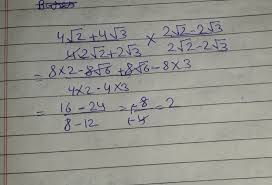 4√2 + 4√3 / 2√2 + 2√3 × 2√2 - 2√3 / 2√2 - 2√3
= 8×2 - 8√6 + 8√6 - 8×3 / 4×2 - 4×3
= 16 - 24 / 8 - 12 = -8 / -4 = 2